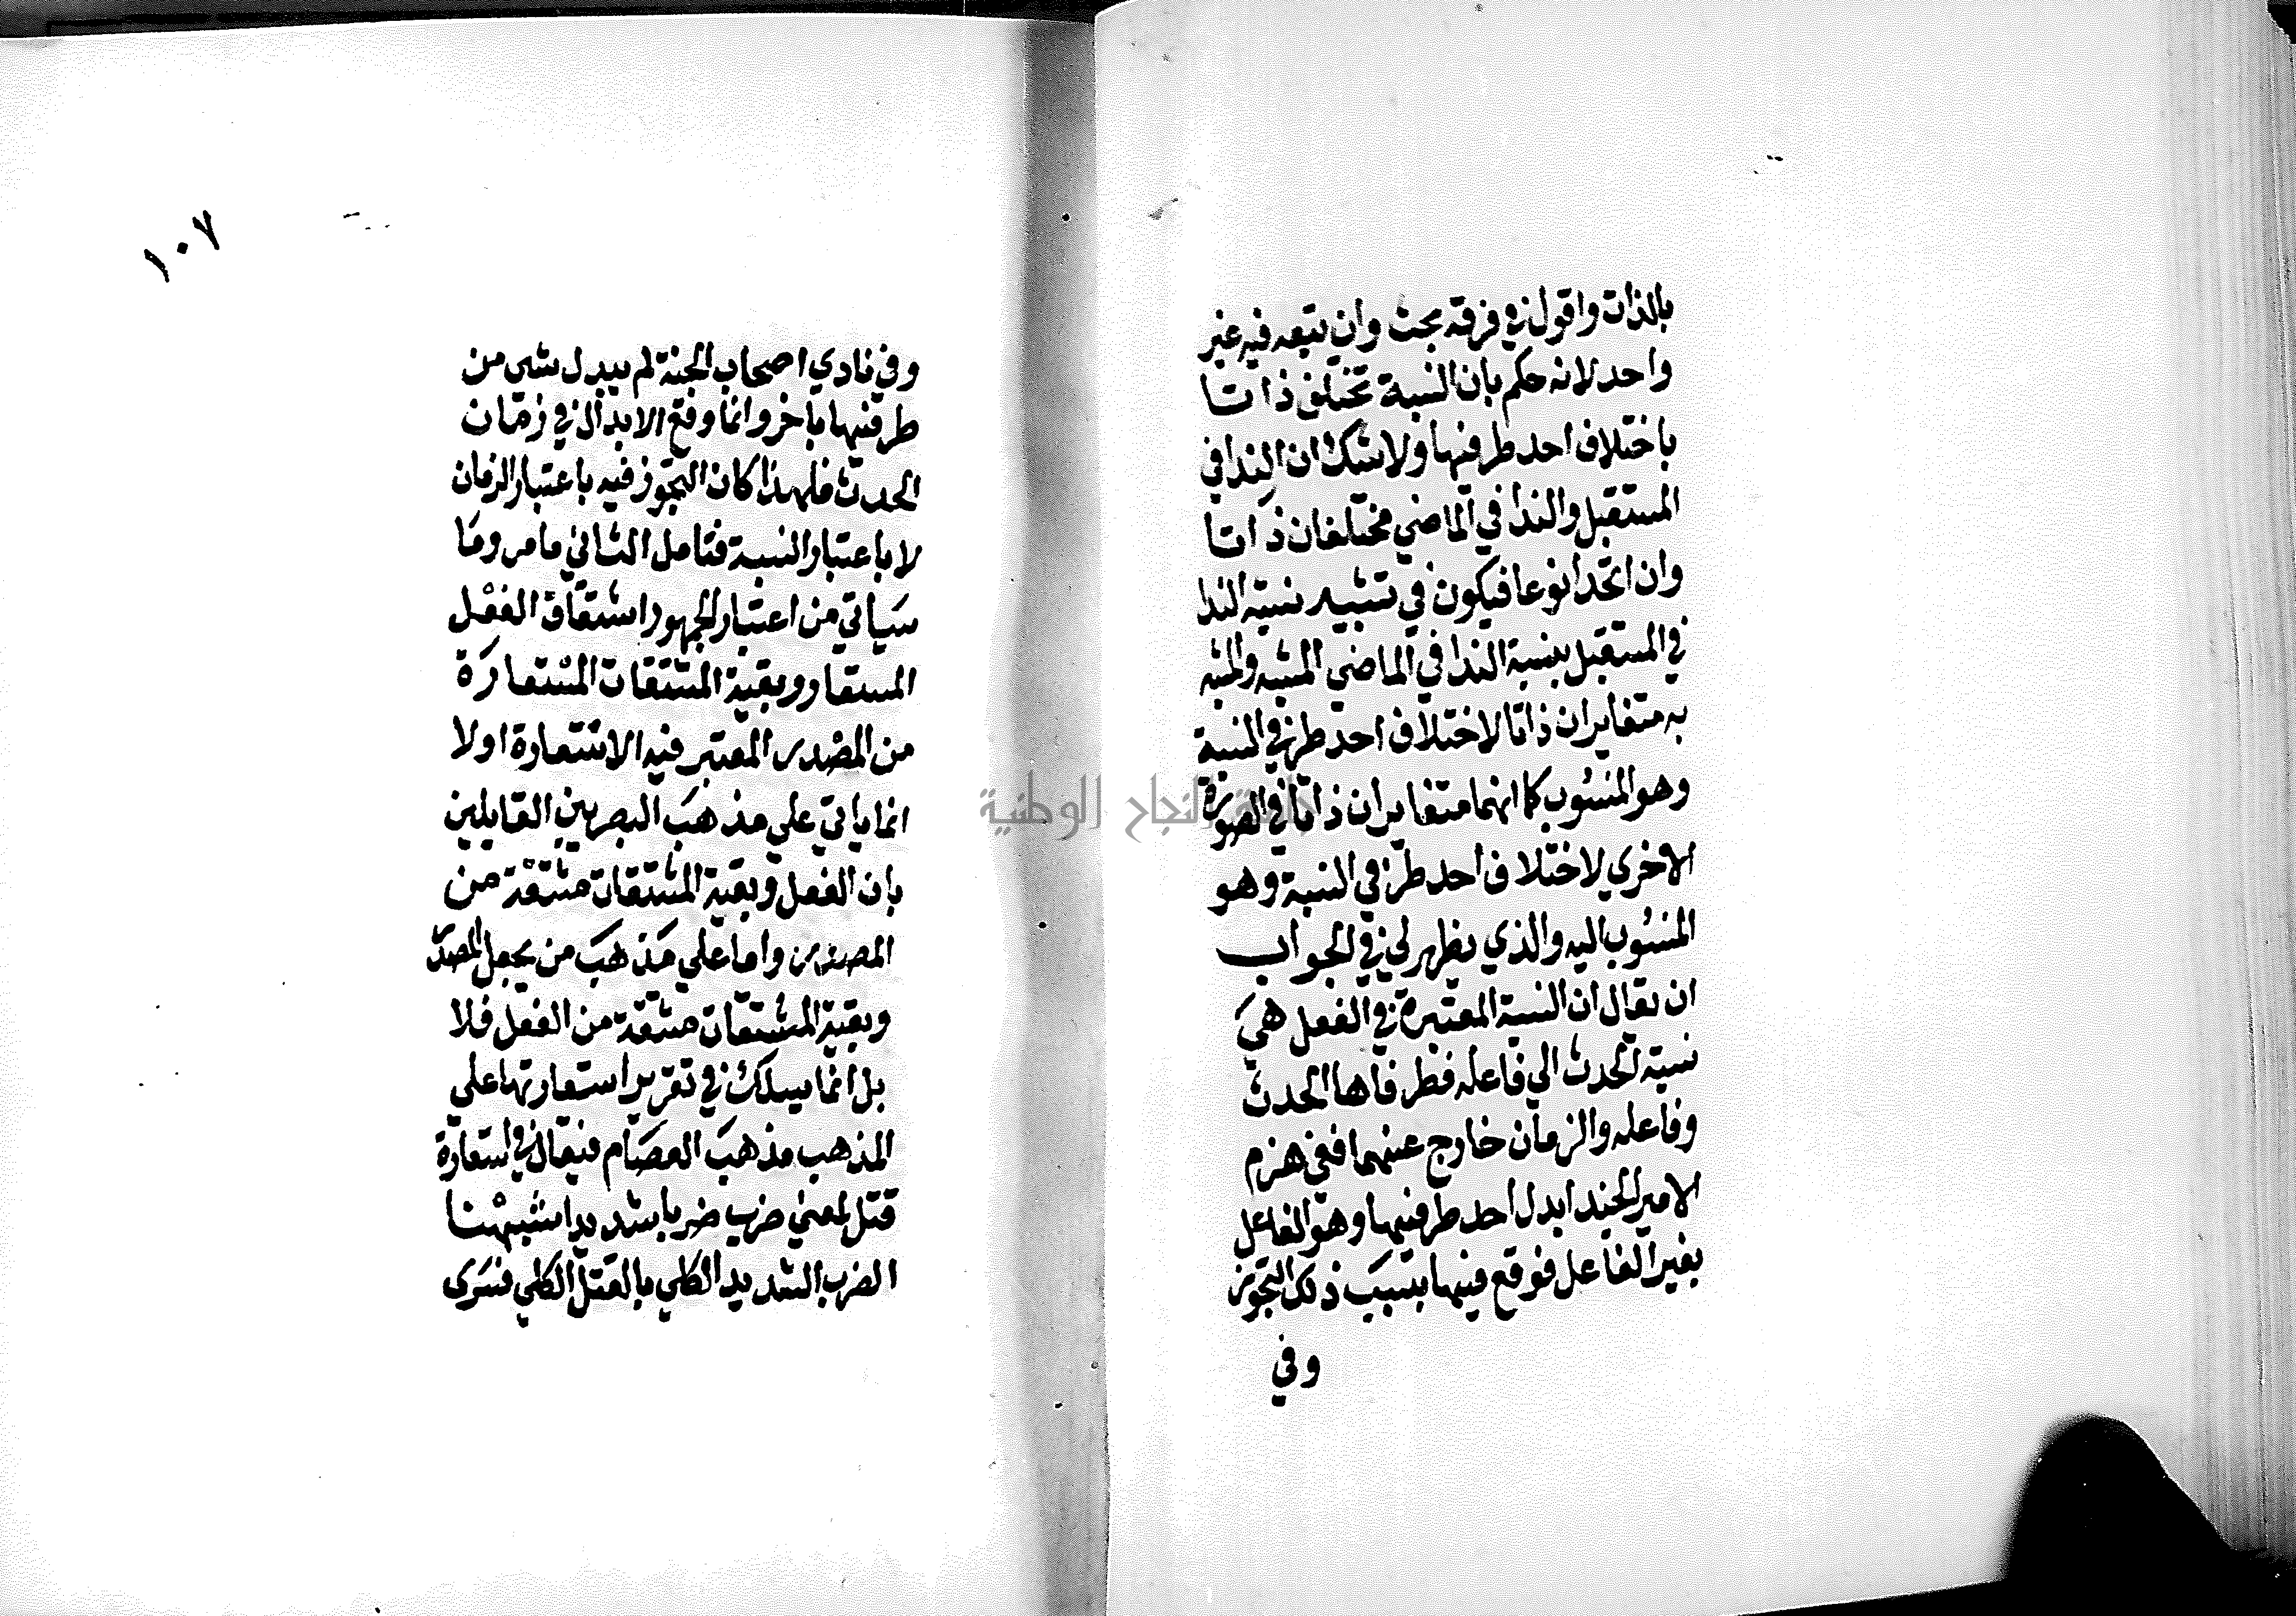 بالذات واقول في فرقه بحث وان تبعه فيه غير
واحد لانه حكم بان النسبة تختلف ذاتا
باختلاف احد طرفيها ولا شك ان الندا في
المستقبل والندا في الماضي مختلفان ذاتا
وان اتحدا نوعا فيكون في تشبيه نسبة الندا
في المستقبل بنسبة الندا في الماضي المشبه والمشبه
به متغايران ذاتا لاختلاف احد طرفي النسبة
وهو المنسوب كما انهما متغايران ذاتا في الصورة
الاخري لاختلاف احد طرفي النسبة وهو
المنسوب اليه والذي يظهر لي في الجواب
ان يقال ان النسبة المعتبرة في الفعل هي
نسبة الحدث الي فاعله فطرفاها الحدث
وفاعله والزمان خارج عنهما ففي هزم
الامير الجند ابدل احد طرفيها وهو الفاعل
بغير الفاعل فوقع فيها بسبب ذلك التجوز
وفي
١٠٧
وفي نادي اصحاب الجنة لم يبدل شي من
طرفيها باخر وانما وقع الابدال في زمان
الحدث فلهذا كان التجوز فيه باعتبار الزمان
لا باعتبار النسبة فتامل الثاني ما مر وما
سياتي من اعتبار الجمهور اشتقاق الفعل
المستعار وبقية المشتقات المستعارة
من المصدر المعتبر فيه الاستعارة اولا
انما ياتي علي مذهب البصريين القايلين
بان الفعل وبقية المشتقات مشتقة من
المصدر واما علي مذهب من يجعل المصدر
وبقية المشتقات مشتقة من الفعل فلا
بل انما يسلك في تقرير استعارتها علي
المذهب مذهب العصام فيقال في استعارة
قتل لمعني ضرب ضربا شديدا شبهنا
الضرب الشديد الكلي بالقتل الكلي فسرى
جامعة النجاح الوطنية